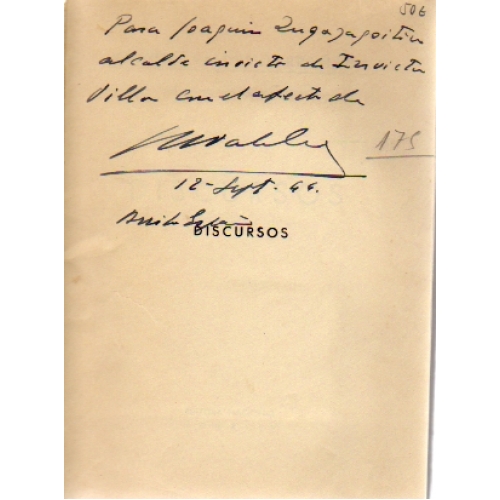 506
Para Joaquin Zugazagoitia
alcalde invicto de Invicta
Villa con el afecto de
175
12-Sept. 44.
DISCURSOS